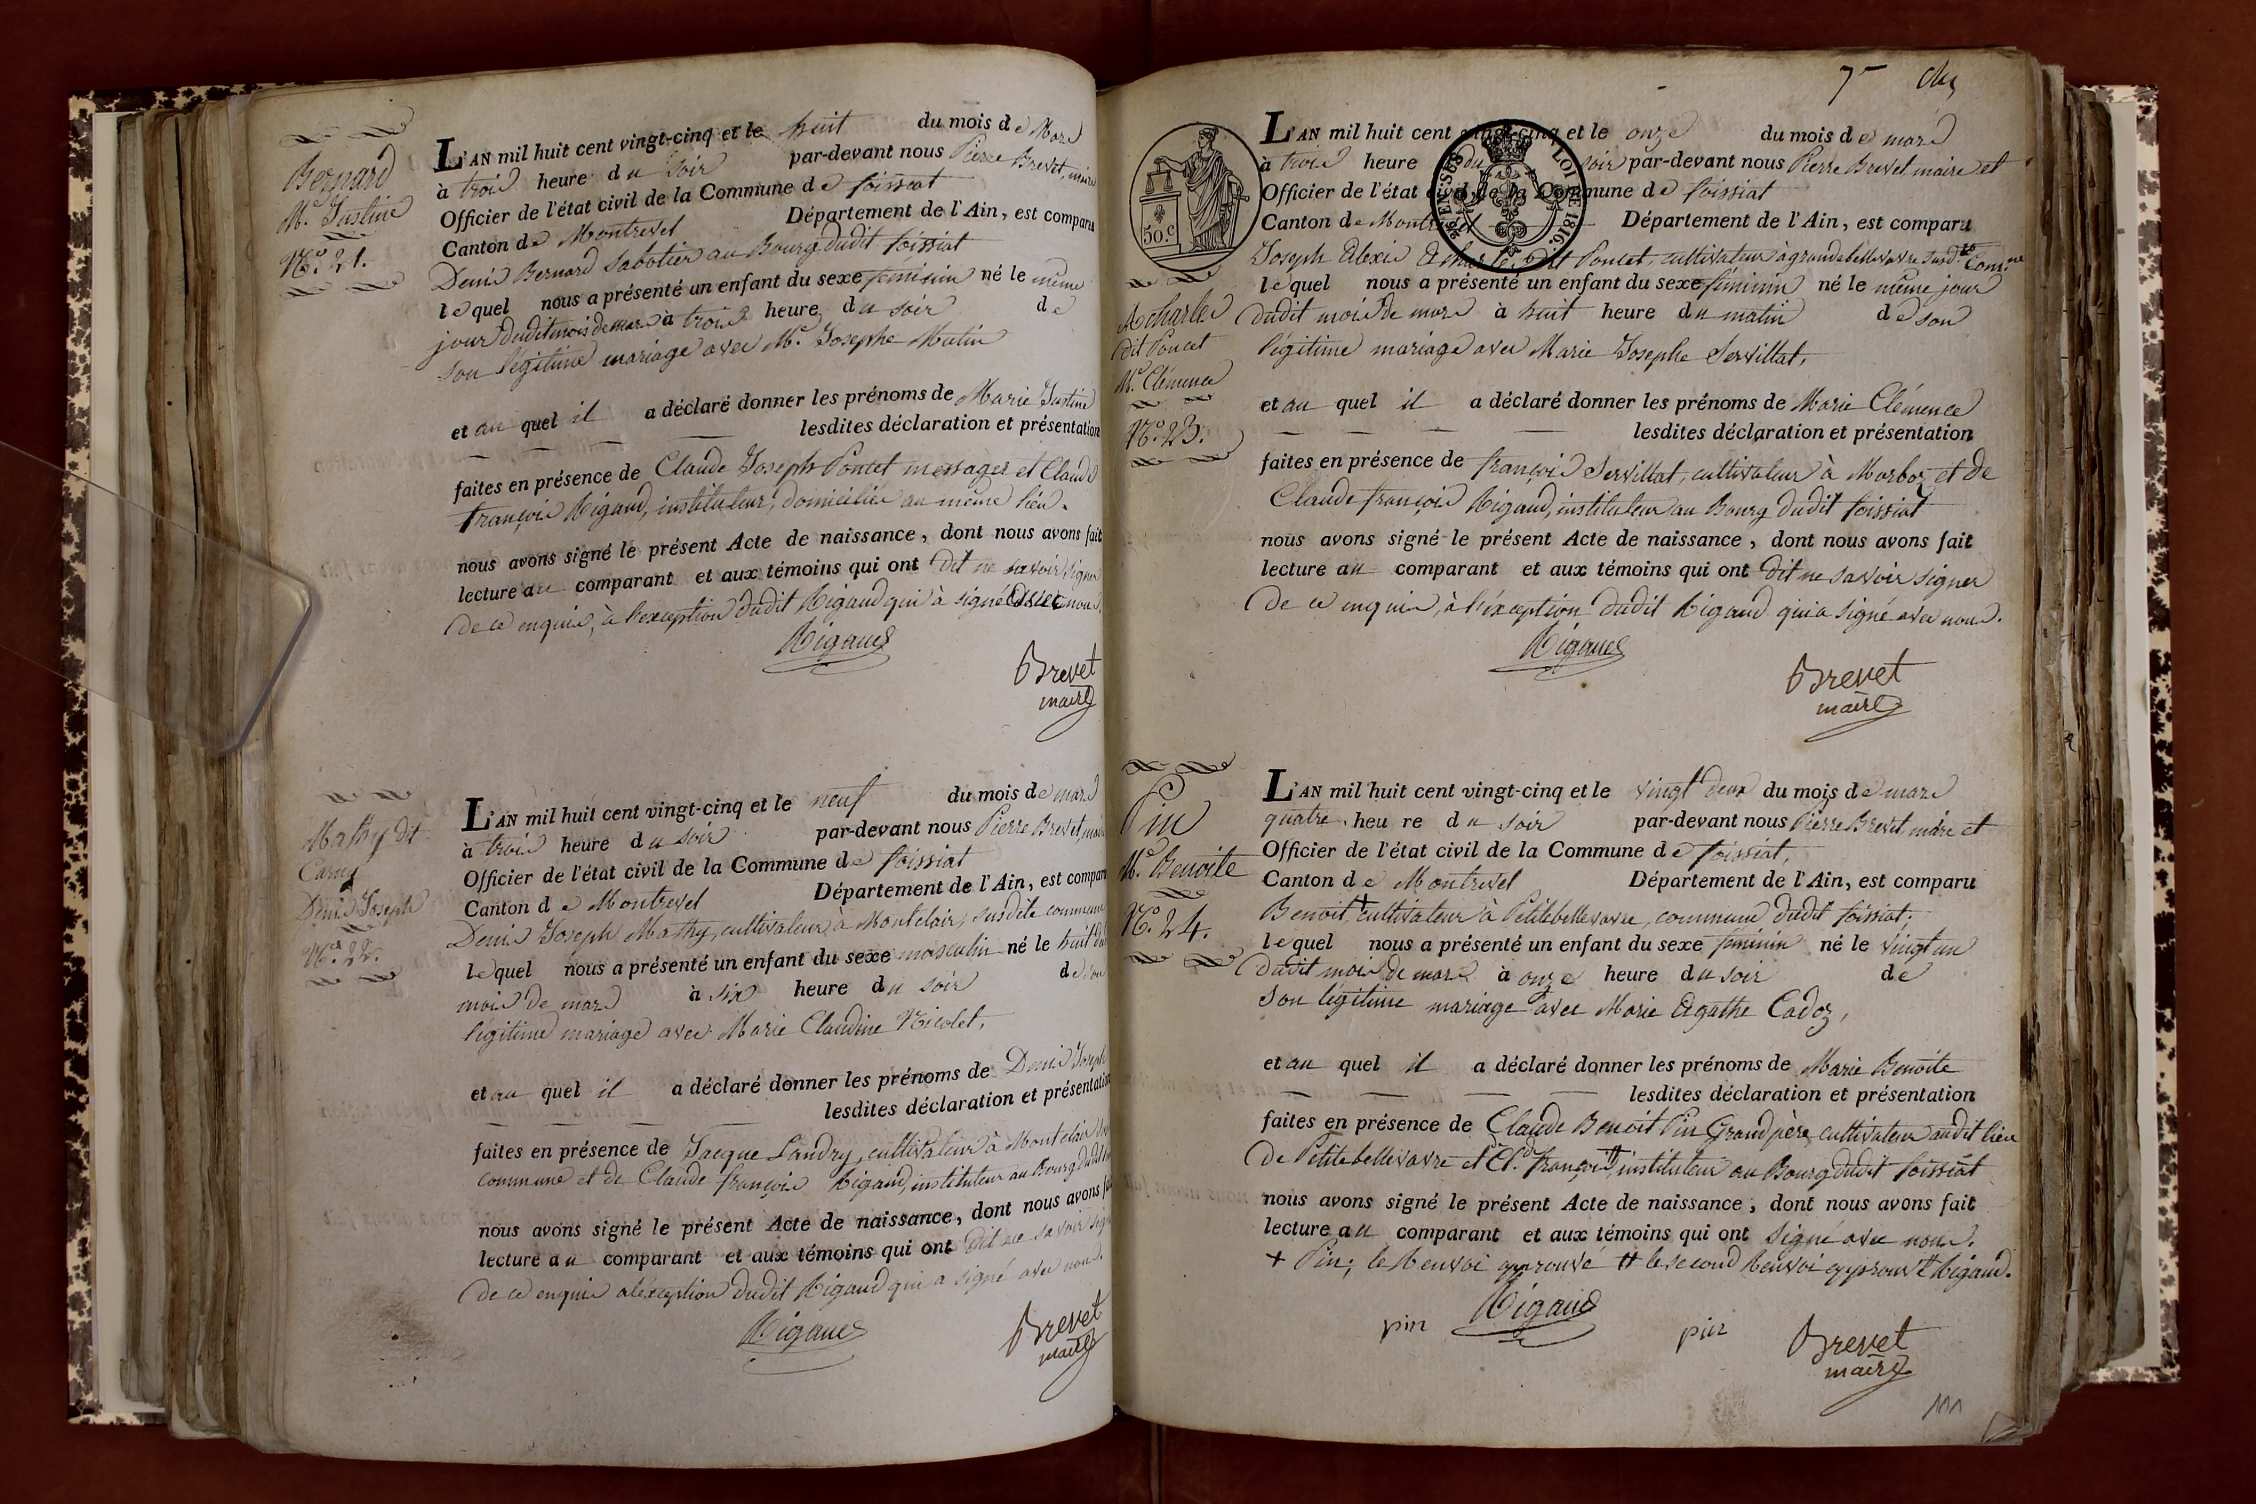 Bernard
Me. Justine
No. 21.
L'AN mil huit cent vingt-cinq et le huit du mois de Mars
à trois heure du soir par-devant nous Pierre Brevet, maire
Officier de l'état civil de la Commune de foissiat
Canton de Montrevel Département de l'Ain, est comparu
Denis Bernard Sabotier au Bourg dudit foissiat
lequel nous a présenté un enfant du sexe féminin né le même
jour dudit mois de mars à trois heure du soir de
son légitime mariage avec Me. Josephe Mutin
et au quel il a déclaré donner les prénoms de Marie Justine
lesdites déclaration et présentation
faites en présence de Claude Joseph Poncet messager et Claude
françois Rigaud, instituteur, domiciliés au même lieu.
nous avons signé le présent Acte de naissance, dont nous avons fait
lecture au comparant et aux témoins qui ont dit ne savoir signer
de ce enquis, à l'exception dudit Rigaud qui à signé avec nous.
Rigaud
Brevet
maire
Mathy dit
Carug
Denis Joseph
No. 22.
L'AN mil huit cent vingt-cinq et le neuf du mois de mars
à trois heure du soir par-devant nous Pierre Brevet, maire
Officier de l'état civil de la Commune de foissiat
Canton de Montrevel Département de l'Ain, est comparu
Denis Joseph Mathy, cultivateur à Montclair, susdite commune
lequel nous a présenté un enfant du sexe masculin né le huit du
mois de mars à six heure du soir de son
légitime mariage avec Marie Claudine Nicolet,
et au quel il a déclaré donner les prénoms de Denis Joseph
lesdites déclaration et présentation
faites en présence de Jacque Landry, cultivateur à Montclair
commune et de Claude françois Rigaud, instituteur au Bourg dudit
nous avons signé le présent Acte de naissance, dont nous avons fait
lecture au comparant et aux témoins qui ont dit ne savoir signer
de ce enquis a l'éxception dudit Rigaud qui a signé avec nous.
Rigaud
Brevet
maire
7e
50.c
ENREG. 1816. LOI DE 1816.
Acharles
dit Poncet
Me. Clémence
No. 23.
L'AN mil huit cent vingt-cinq et le onze du mois de mars
à trois heure du soir par-devant nous Pierre Brevet maire et
Officier de l'état civil de la Commune de foissiat
Canton de Montrevel Département de l'Ain, est comparu
Joseph Alexis Acharles, dit Poncet, cultivateur à grandebellevavre susdte. Comne
lequel nous a présenté un enfant du sexe féminin né le même jour
dudit mois de mars à huit heure du matin de son
légitime mariage avec Marie Josephe Servillat,
et au quel il a déclaré donner les prénoms de Marie Clémence
lesdites déclaration et présentation
faites en présence de françois Servillat, cultivateur à Marboz et de
Claude françois Rigaud, instituteur au Bourg dudit foissiat
nous avons signé le présent Acte de naissance, dont nous avons fait
lecture au comparant et aux témoins qui ont dit ne savoir signer
de ce enquis, à l'éxception dudit Rigaud qui a signé avec nous.
Rigaud
Brevet
maire
Pin
Me. Benoite
No. 24.
L'AN mil huit cent vingt-cinq et le vingt deux du mois de mars
quatre heure du soir par-devant nous Pierre Brevet maire et
Officier de l'état civil de la Commune de foissiat,
Canton de Montrevel Département de l'Ain, est comparu
Benoit + cultivateur à Petitebellevavre, commune dudit foissiat.
lequel nous a présenté un enfant du sexe féminin né le vingt un
dudit mois de mars à onze heure du soir de
son légitime mariage avec Marie Agathe Cadoz,
et au quel il a déclaré donner les prénoms de Marie Benoite
lesdites déclaration et présentation
faites en présence de Claude Benoit Pin Grand père cultivateur audit lieu
de Petitebellevavre et Cld. françois ++, instituteur au Bourg dudit foissiat
nous avons signé le présent Acte de naissance, dont nous avons fait
lecture au comparant et aux témoins qui ont Signé avec nous.
+ Pin; le Renvoi approuvé ++ le second Renvoi approuvé ++ Rigaud.
pin Rigaud pin Brevet
maire
111